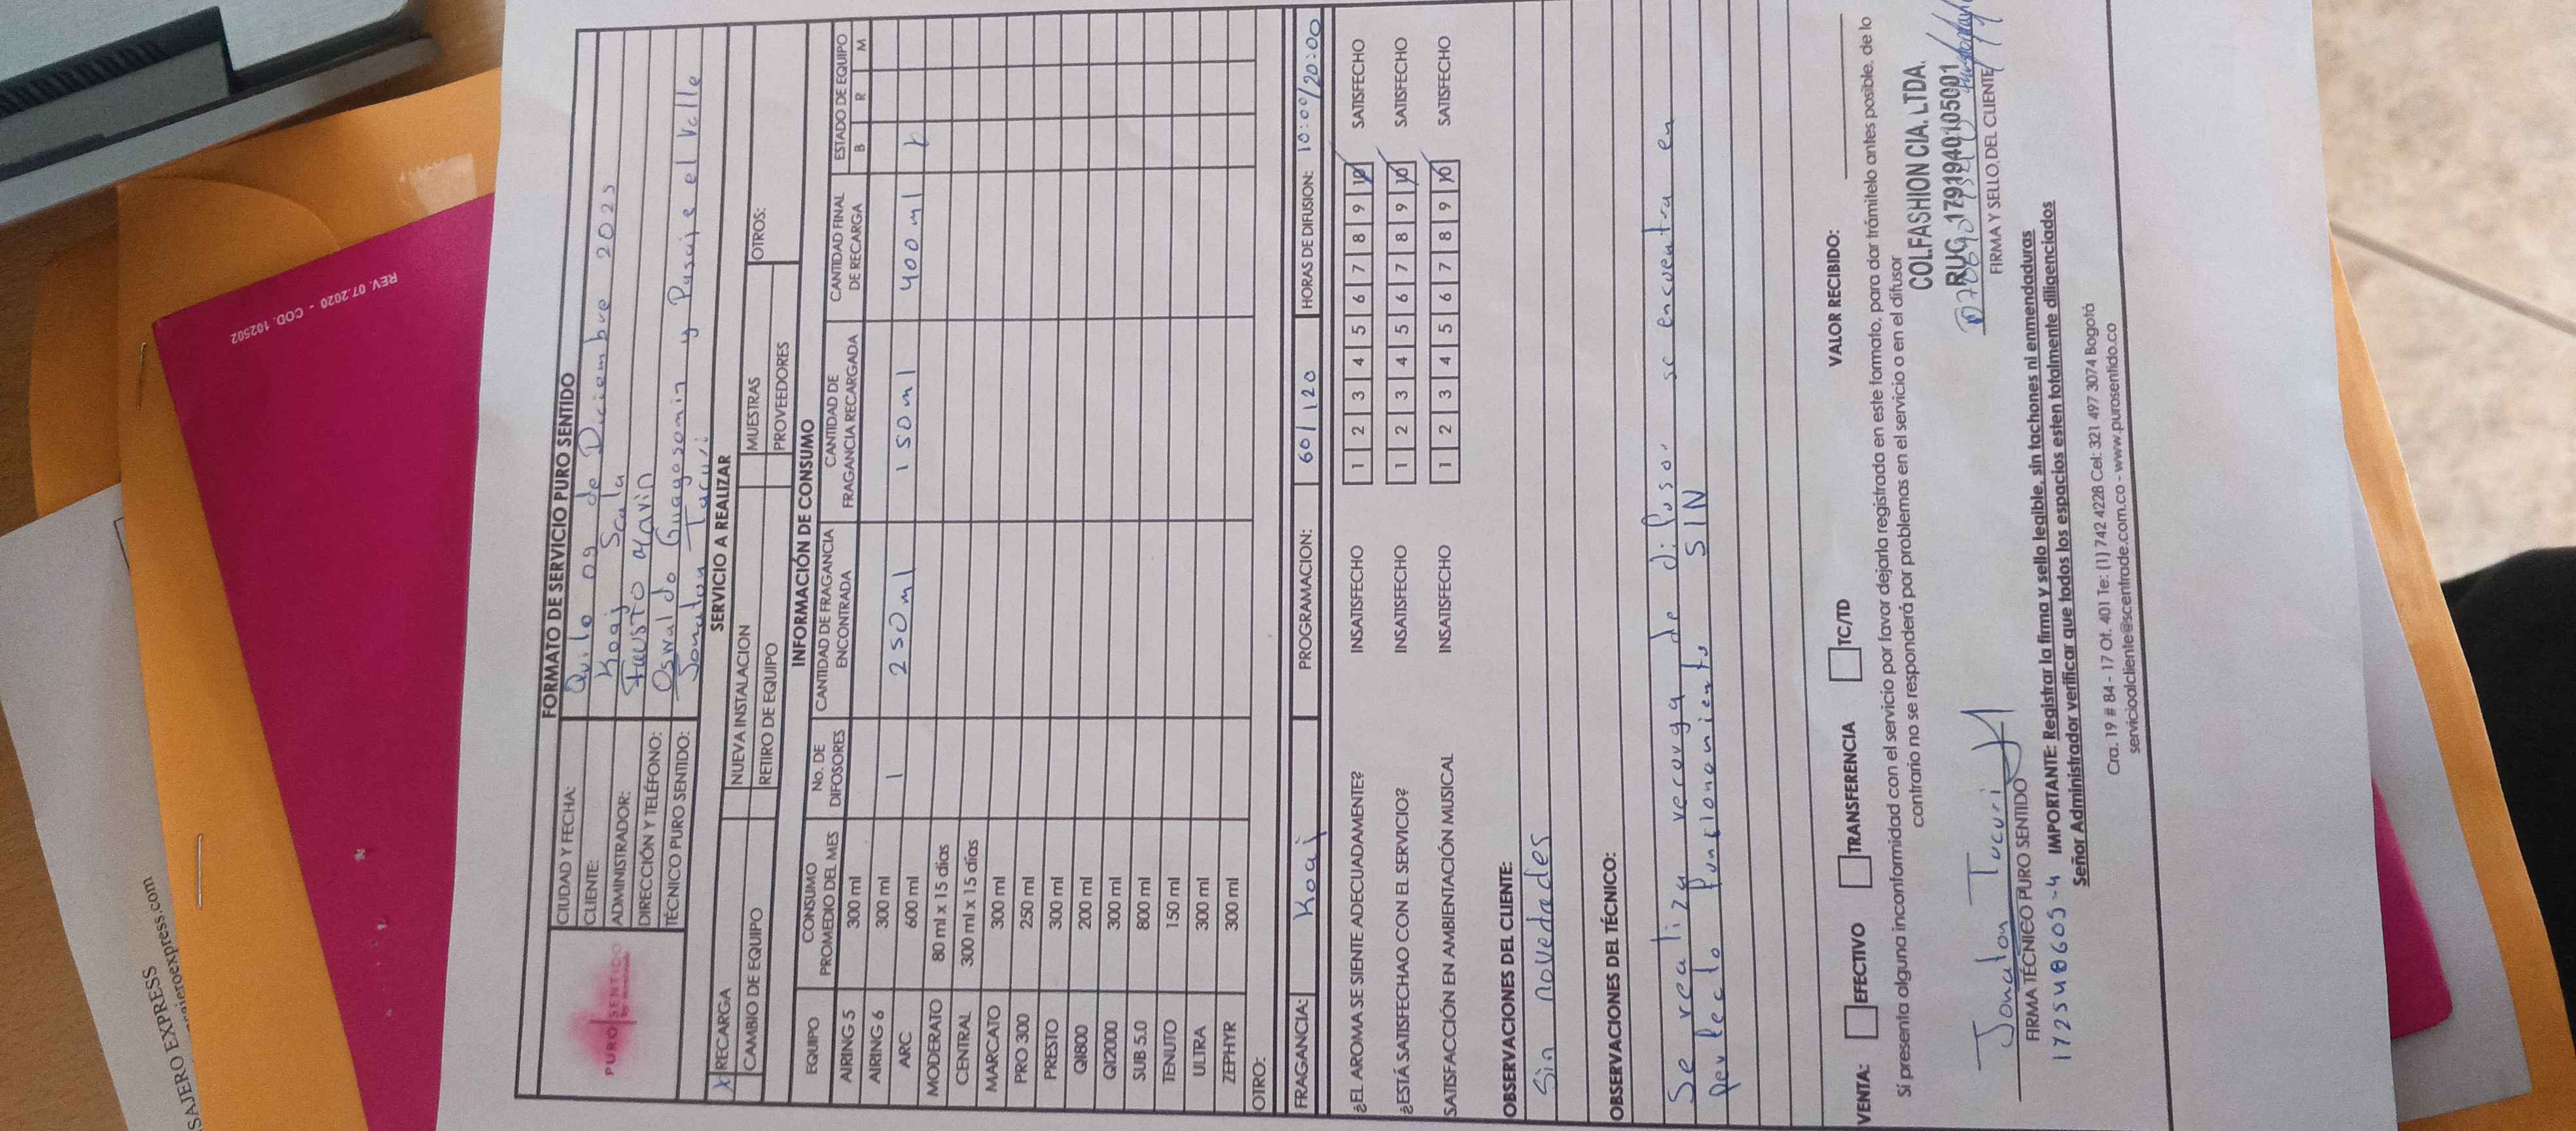 SAJERO EXPRESS
sajeroexpress.com
REV. 07.2020 - COD. 102502
PURO SENTIDO
FORMATO DE SERVICIO PURO SENTIDO
CIUDAD Y FECHA: Quito 09 de Diciembre 2025
CLIENTE: Koaj Scala
ADMINISTRADOR: Fausto Marin
DIRECCIÓN Y TELÉFONO: Osvaldo Guayasamin y Pasaje el Valle
TÉCNICO PURO SENTIDO: Jonatan Tacuri
SERVICIO A REALIZAR
X RECARGA NUEVA INSTALACION MUESTRAS OTROS:
CAMBIO DE EQUIPO RETIRO DE EQUIPO PROVEEDORES
INFORMACIÓN DE CONSUMO
EQUIPO CONSUMO PROMEDIO DEL MES No. DE DIFOSORES CANTIDAD DE FRAGANCIA ENCONTRADA CANTIDAD DE FRAGANCIA RECARGADA CANTIDAD FINAL DE RECARGA ESTADO DE EQUIPO
B R M
AIRING 5 300 ml
AIRING 6 300 ml
ARC 600 ml 1 250ml 150ml 400ml
MODERATO 80 ml x 15 días
CENTRAL 300 ml x 15 días
MARCATO 300 ml
PRO 300 250 ml
PRESTO 300 ml
QI800 200 ml
QI2000 300 ml
SUB 5.0 800 ml
TENUTO 150 ml
ULTRA 300 ml
ZEPHYR 300 ml
OTRO:
FRAGANCIA: Koaj PROGRAMACION: 60/120 HORAS DE DIFUSION: 10:00/20:00
¿EL AROMA SE SIENTE ADECUADAMENTE? INSATISFECHO 1 2 3 4 5 6 7 8 9 10 SATISFECHO
¿ESTÁ SATISFECHAO CON EL SERVICIO? INSATISFECHO 1 2 3 4 5 6 7 8 9 10 SATISFECHO
SATISFACCIÓN EN AMBIENTACIÓN MUSICAL INSATISFECHO 1 2 3 4 5 6 7 8 9 10 SATISFECHO
OBSERVACIONES DEL CLIENTE:
Sin novedades
OBSERVACIONES DEL TÉCNICO:
Se realiza recarga de difusor se encuentra en
perfecto funcionamiento SIN
VENTA: EFECTIVO TRANSFERENCIA TC/TD VALOR RECIBIDO:
Si presenta alguna inconformidad con el servicio por favor dejarla registrada en este formato, para dar trámitelo antes posible, de lo
contrario no se responderá por problemas en el servicio o en el difusor
COLFASHION CIA. LTDA.
RUC 1791940105001
Jonatan Tacuri
FIRMA TÉCNICO PURO SENTIDO FIRMA Y SELLO DEL CLIENTE
IMPORTANTE: Registrar la firma y sello legible, sin tachones ni enmendaduras
Señor Administrador verificar que todos los espacios esten totalmente diligenciados
Cra. 19 # 84 - 17 Of. 401 Te: (1) 742 4228 Cel: 321 497 3074 Bogotá
servicioalcliente@scentrade.com.co - www.purosentido.co